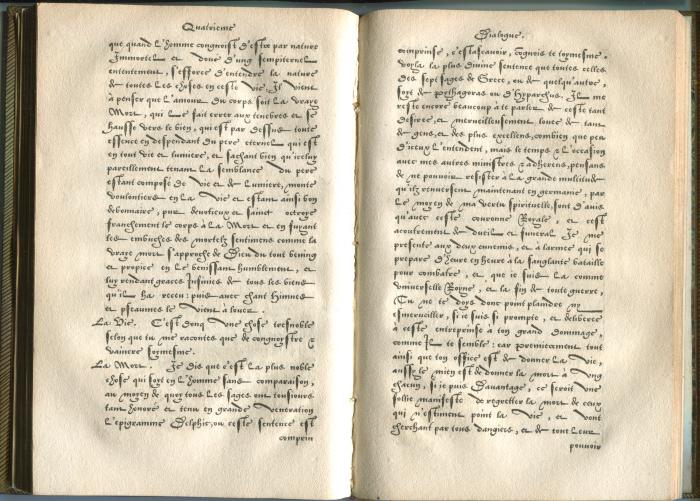 Quatrieme
que quand l'homme congnoist d'estre par nature
Immortel et doue d'ung sempiternel
entendement, s'efforce d'entendre la nature
de toutes les choses en ceste vie, Il vient
à penser que l'amour du corps soit la vraye
Mort, qui le fait errer aux tenebres et se
hausse vers le bien, qui est par dessus toute
essence en despendant du pere eternel qui est
en tout vie et lumiere, et sachant bien qu'iceluy
pareillement tenant la semblance du pere
estant composé de vie et de lumiere, monte
voulontiers en la vie et estant ainsi bon
debonnaire, pur devotieux et sainct octroye
franchement le corps à la Mort et en fuyant
les embuches des mortelz sentimens comme la
vraye mort s'approche de Dieu du tout bening
et propice en le benissant humblement, et
luy rendant graces infinies de tous les biens
qu'il ha receu: puis avec chant Himnes
et pseaumes le vient à louer.
La Vie. C'est donq une chose tresnoble
selon que tu me racontes que de congnoistre &
vaincre soymesme.
La Mort. Je dis que c'est la plus noble
chose qui soyt en l'homme sans comparaison,
au moyen de quoy tous les sages ont tousiours
tant honoré et tenu en grande veneration
l'epigramme Delphic, ou ceste sentence est
comprin
Dialogue.
comprinse, c'est ascavoir, cognois te toymesme.
voyla la plus divine sentence que toutes celles
des sept sages de Grece, ou de quelqu'autre,
soyt de pythagoras ou d'Hyparchus. Il me
reste encore beaucoup à te parler de ceste tant
desirée, et merveilleusement louée de tant
de gens, et des plus excellens, combien que peu
d'iceux l'entendent, mais le temps & l'occasion
avec mes autres ministres & adherens, pensans
de ne pouvoir resister à la grande multitude
qu'ilz renversent maintenant en germanie, par
le moyen de ma vertu spirituelle, sont d'avis
qu'avec ceste couronne Royale, et cest
acoutrement de dueil et funeral Je me
presente aux deux ennemis, et à l'armée qui se
prepare d'heure en heure à la sanglante bataille
pour combatre, et que ie suis la comme
universelle Royne, et la fin de toute guerre,
Tu ne te doys donc point plaindre ny
esmerveiller, si ie suis si prompte, et deliberée
à ceste entreprinse à ton grand dommage,
comme il te semble: car premierement tout
ainsi que ton office est de donner la vie,
aussy le mien est de donner la mort à ung
chacun, si ie puis Davantage, ce seroit une
follie manifeste de regretter la mort de ceux
qui n'estiment point la vie, et vont
cherchant par tous dangiers, et de tout leur
pouvoir